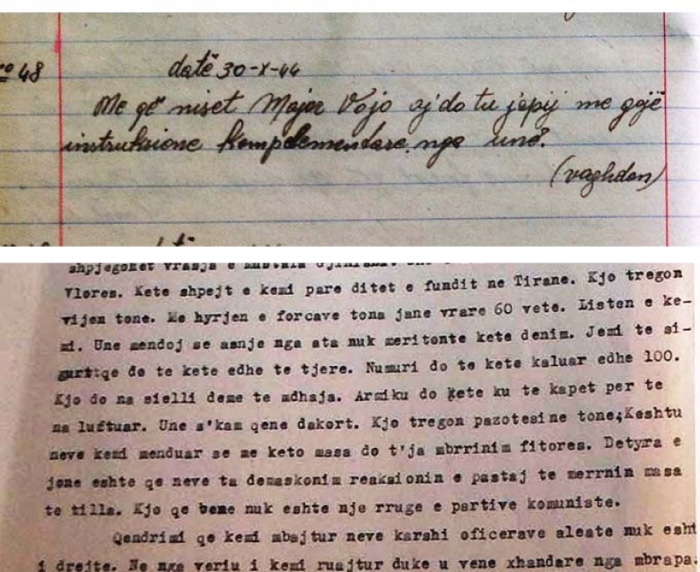 nº 48 datë 30-X-44
Me që niset Major Vojo aj do tu japij me gojë
instruksione komplementare nga unë.
(vaghdon)
shpjegohet vrasja e
Vlores. Kete shpejt e kemi pare ditet e fundit ne Tirane. Kjo tregon
vijen tone. Me hyrjen e forcave tona jane vrare 60 vete. Listen e ke-
mi. Une mendoj se asnje nga ata nuk meritonte kete denim. Jemi te si-
gurtqe do te kete edhe te tjere. Numuri do te kete kaluar edhe 100.
Kjo do na sielli deme te mdhaja. Armiku do kete ku te kapet per te
na luftuar. Une s'kam qene dakort. Kjo tregon pazotesine tone;Keshtu
neve kemi menduar se me keto masa do t'ja mbrrinim fitores. Detyra e
jone eshte qe neve ta demaskonim reaksionin e pastaj te merrnin masa
te tilla. Kjo qe beme nuk eshte nje rruge e partive komuniste.
Qendrimi qe kemi mbajtur neve karshi oficerave aleate nuk esht
i drejte. Ne nga veriu i kemi ruajtur duke u vene xhandare nga mbrapa.